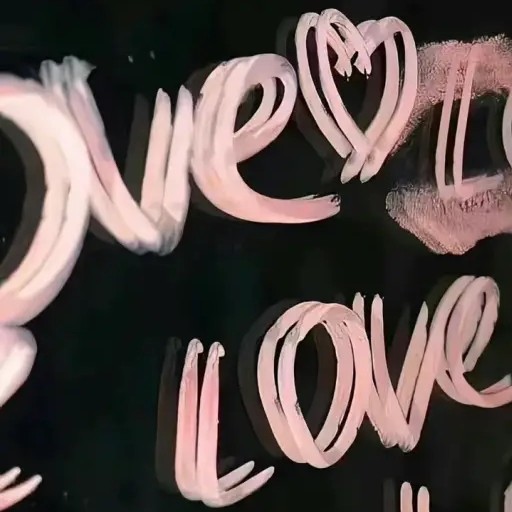 ove
Love